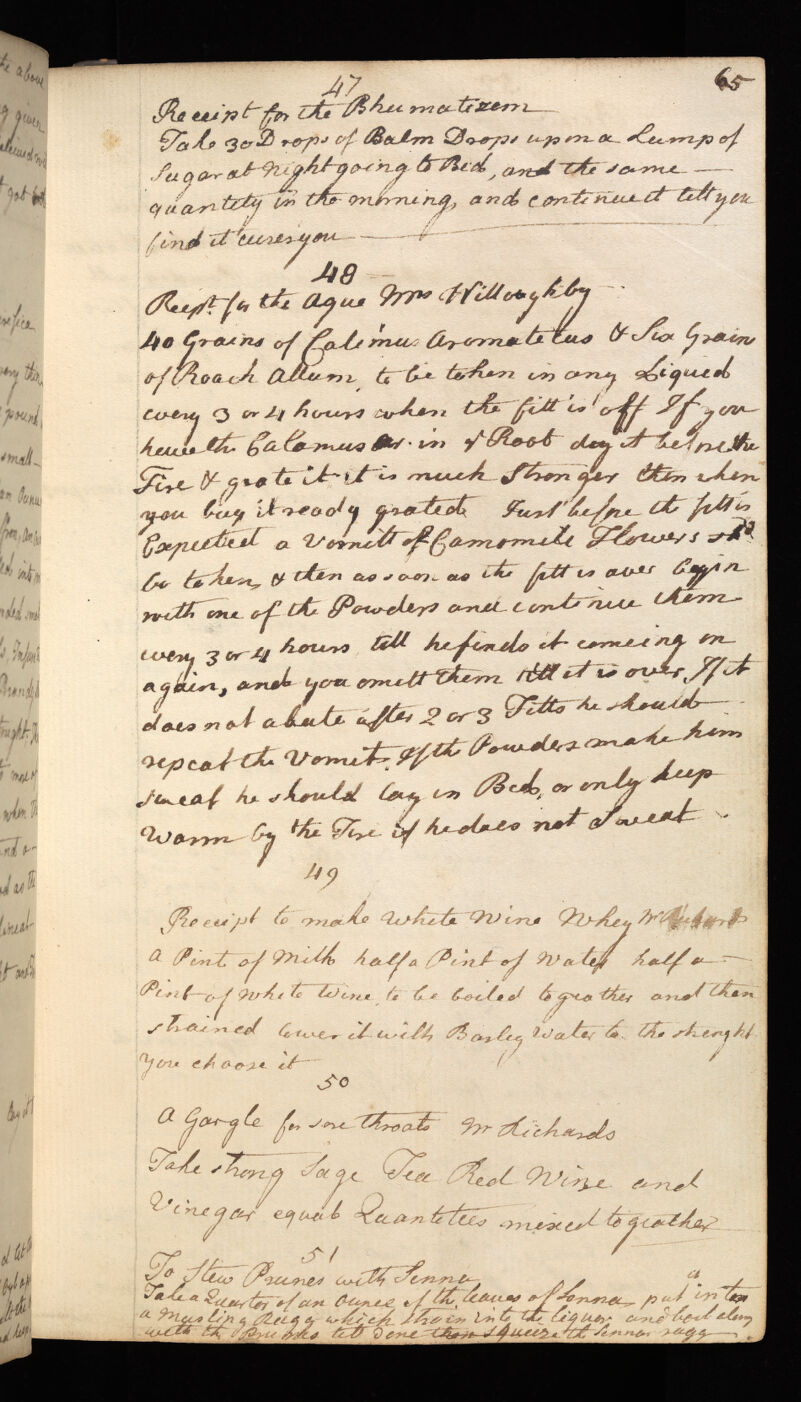 65
47
Receipt for the Rhumatizem
Take 30 Drops of Balm Drops upon a Lump of
Sugar at Night going to Bed, and the same
quantity in the morning, and continue it till you
find it cures you
48
Recpt. for the Ague Mrs Willoughby
40 Grains of Calimus Aromaticus & Six Grains
of Roach Allum, to be taken in any Liqued
every 3 or 4 hours when the fitt is off If you
have the Calamus Ar. in ye Root dry it before the
Fire & grate it it is much Stronger then when
you buy it ready grated Just before the fitt is
Expected a Vomitt of Camomile Flowers shd
be taken, & then as soon as the fitt is over begin
with one of the Powders and continue them
every 3 or 4 hours till he finds it comeing on
again, and you omitt them till it is over, If it
does not abate after 2 or 3 Fitts he should
repeat the Vomit. If the Powders make him
sweat he should lay in Bed, or only keep
Warm by the Fire if he does not Sweat
49
Receipt to make White Wine Whey Mr Richards
A Pint of Milk half a Pint of Water half a
Pint of White Wine, to be boiled togeather and then
strained lower it with Barley Water to the strenght
you choose it
50
A Gargle for sore throats Mr Richards
Take strong Sage Tea Red Wine and
Vinegar equal Quantetees mixed togeather
51
To Stew Prunes with Senna
Take a Quarter of an Ounce of the leaves of Senna put in
a Musling Ragg which throw into the liquor and boil along
with the Prunes till done then squeeze the Senna ragg